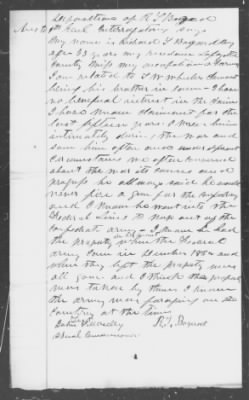 Deposition of R T Bogard
To Each Interrogatory says
My name is Richard T Bogard my
age 33 years my residence Lafayette
County Miss my occupation a farmer
I am related to T W Wheler Claimant
being his brother in law I have
no beneficial interest in the claim
I have known claimant for the
last fifteen years I knew him
intimately during the war and
saw him often under
circumstances we often conversed
about the war its causes and
progress he always said he would
never fire a gun for the
and I know he went into the
Federal lines to keep out of the
Confederate army I know he had
the property when the Federal
army came in December 1862 and
when they left the property was
all gone and I think the property
was taken by them I know
the army was foraging on the
Country at the time
R. T. Bogard
Special Commissioner